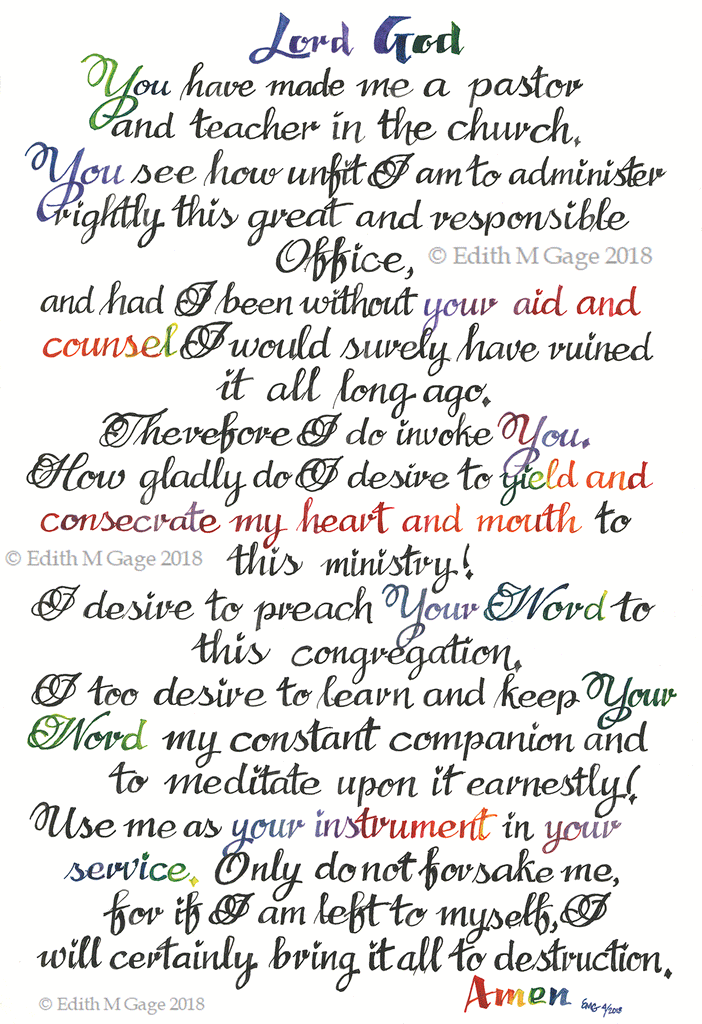 Lord God
You have made me a pastor
and teacher in the church.
You see how unfit I am to administer
rightly this great and responsible
Office,
© Edith M Gage 2018
and had I been without your aid and
counsel I would surely have ruined
it all long ago.
Therefore I do invoke You.
How gladly do I desire to yield and
consecrate my heart and mouth to
© Edith M Gage 2018
this ministry!
I desire to preach Your Word to
this congregation.
I too desire to learn and keep Your
Word my constant companion and
to meditate upon it earnestly!
Use me as your instrument in your
service. Only do not forsake me,
for if I am left to myself, I
will certainly bring it all to destruction.
Amen
EMG 4/2018
© Edith M Gage 2018